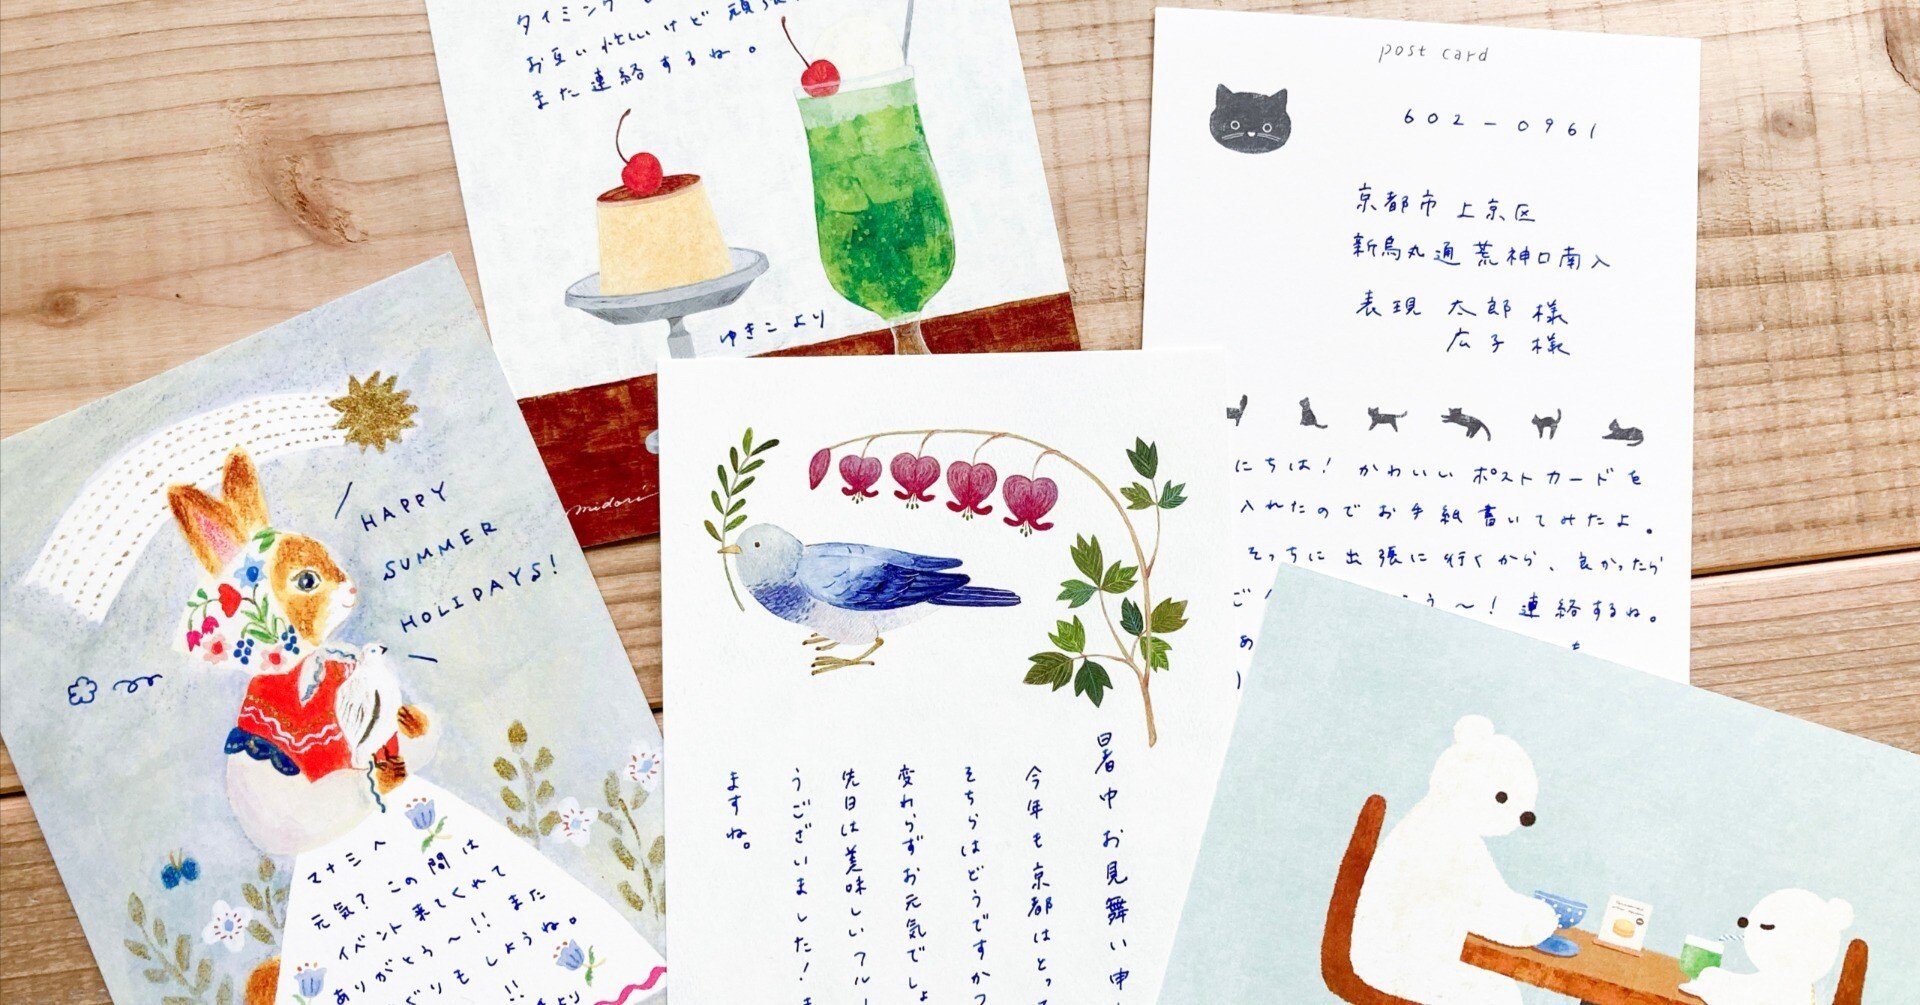 タイミング
お互い忙しいけど
また連絡するね。
ゆきこより
midori
post card
602-0961
京都市上京区
新烏丸通荒神口南入
表現 太郎様
広子様
にちは！かわいいポストカードを
入れたのでお手紙書いてみたよ。
そっちに出張に行くから、良かったら
う〜！連絡するね。
HAPPY
SUMMER
HOLIDAYS!
マナミへ
元気？この間は
イベント来てくれて
ありがとう〜!! また
ぐりもしようね。
!!
より
暑中お見舞い申
今年も京都はとっ
そちらはどうですか
変わらずお元気でしょ
先日は美味しいフルー
うございました！
ますね。